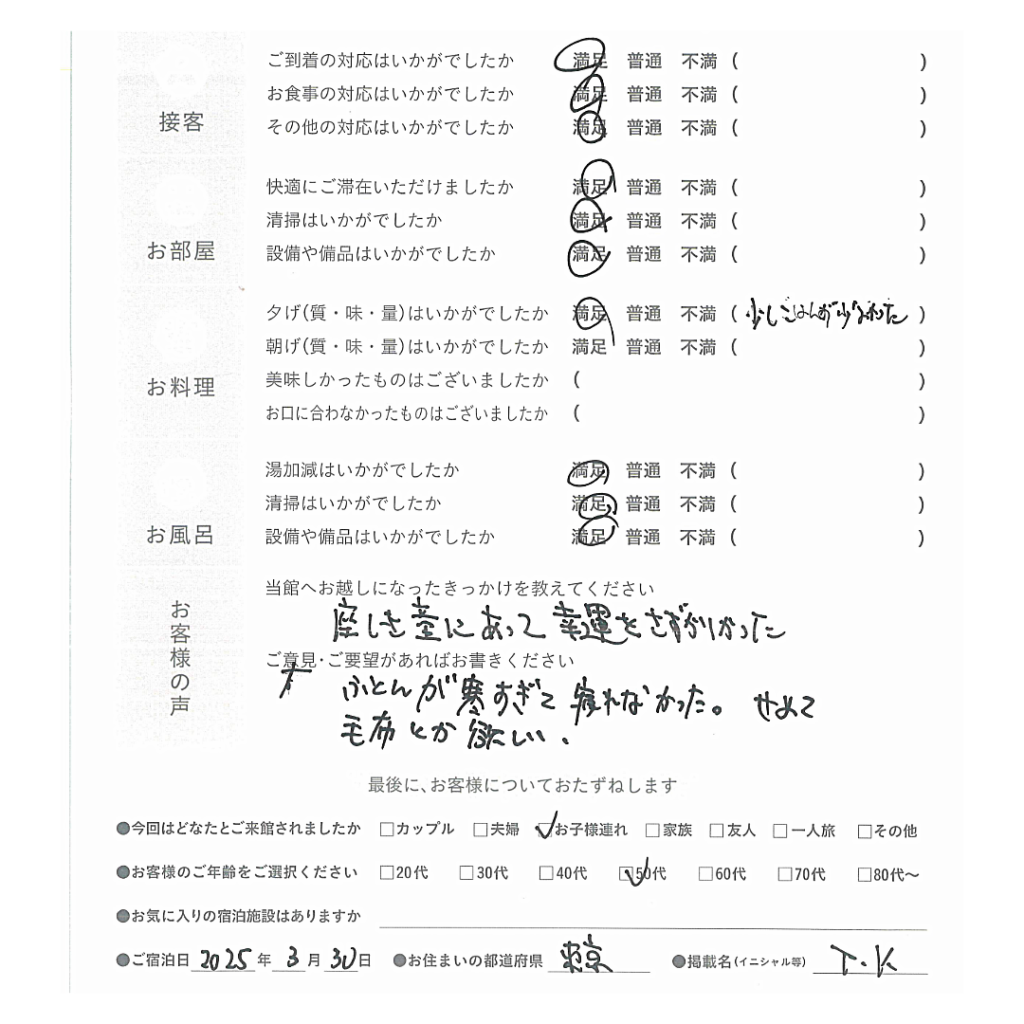 接客
ご到着の対応はいかがでしたか 満足 普通 不満 ( )
お食事の対応はいかがでしたか 満足 普通 不満 ( )
その他の対応はいかがでしたか 満足 普通 不満 ( )
お部屋
快適にご滞在いただけましたか 満足 普通 不満 ( )
清掃はいかがでしたか 満足 普通 不満 ( )
設備や備品はいかがでしたか 満足 普通 不満 ( )
お料理
夕げ(質・味・量)はいかがでしたか 満足 普通 不満 ( 少しごはんが少なかった )
朝げ(質・味・量)はいかがでしたか 満足 普通 不満 ( )
美味しかったものはございましたか ( )
お口に合わなかったものはございましたか ( )
お風呂
湯加減はいかがでしたか 満足 普通 不満 ( )
清掃はいかがでしたか 満足 普通 不満 ( )
設備や備品はいかがでしたか 満足 普通 不満 ( )
お客様の声
当館へお越しになったきっかけを教えてください
座しき童にあって幸運をさずかりたかった
ご意見・ご要望があればお書きください
ふとんが寒すぎて寝れなかった。 せめて
毛布とか欲しい.
最後に、お客様についておたずねします
●今回はどなたとご来館されましたか □カップル □夫婦 ☑お子様連れ □家族 □友人 □一人旅 □その他
●お客様のご年齢をご選択ください □20代 □30代 □40代 ☑50代 □60代 □70代 □80代〜
●お気に入りの宿泊施設はありますか
●ご宿泊日 2025 年 3 月 30 日 ●お住まいの都道府県 東京 ●掲載名(イニシャル等) T.K